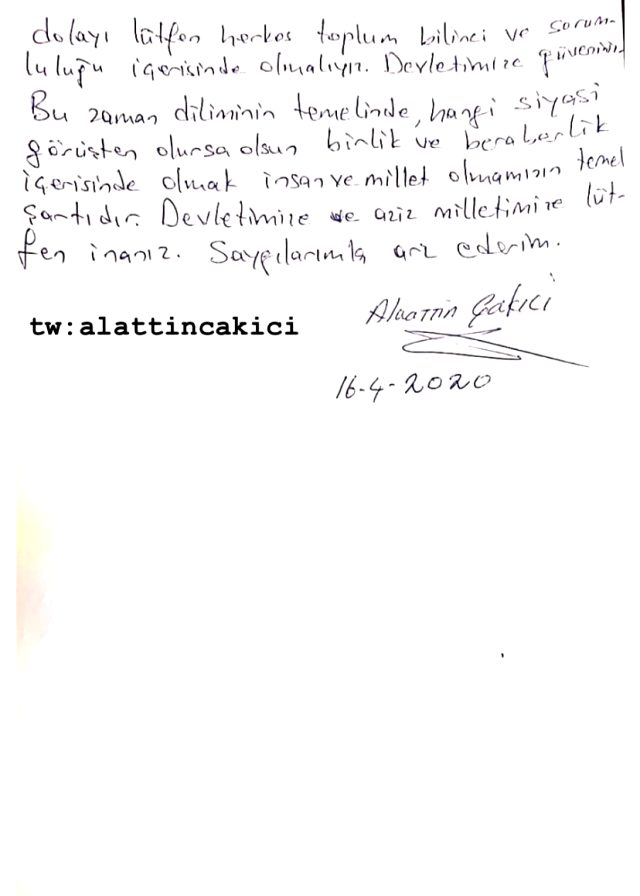 dolayı lütfen herkes toplum bilinci ve sorum-
luluğu içerisinde olmalıyız. Devletimize güvenini-
Bu zaman diliminin temelinde, hangi siyasi
görüşten olursa olsun birlik ve beraberlik
içerisinde olmak insan ve millet olmamızın temel
şartıdır. Devletimize ve aziz milletimize lüt-
fen inanız. Saygılarımla arz ederim.
Alaattin Çakıcı
tw:alattincakici
16-4-2020